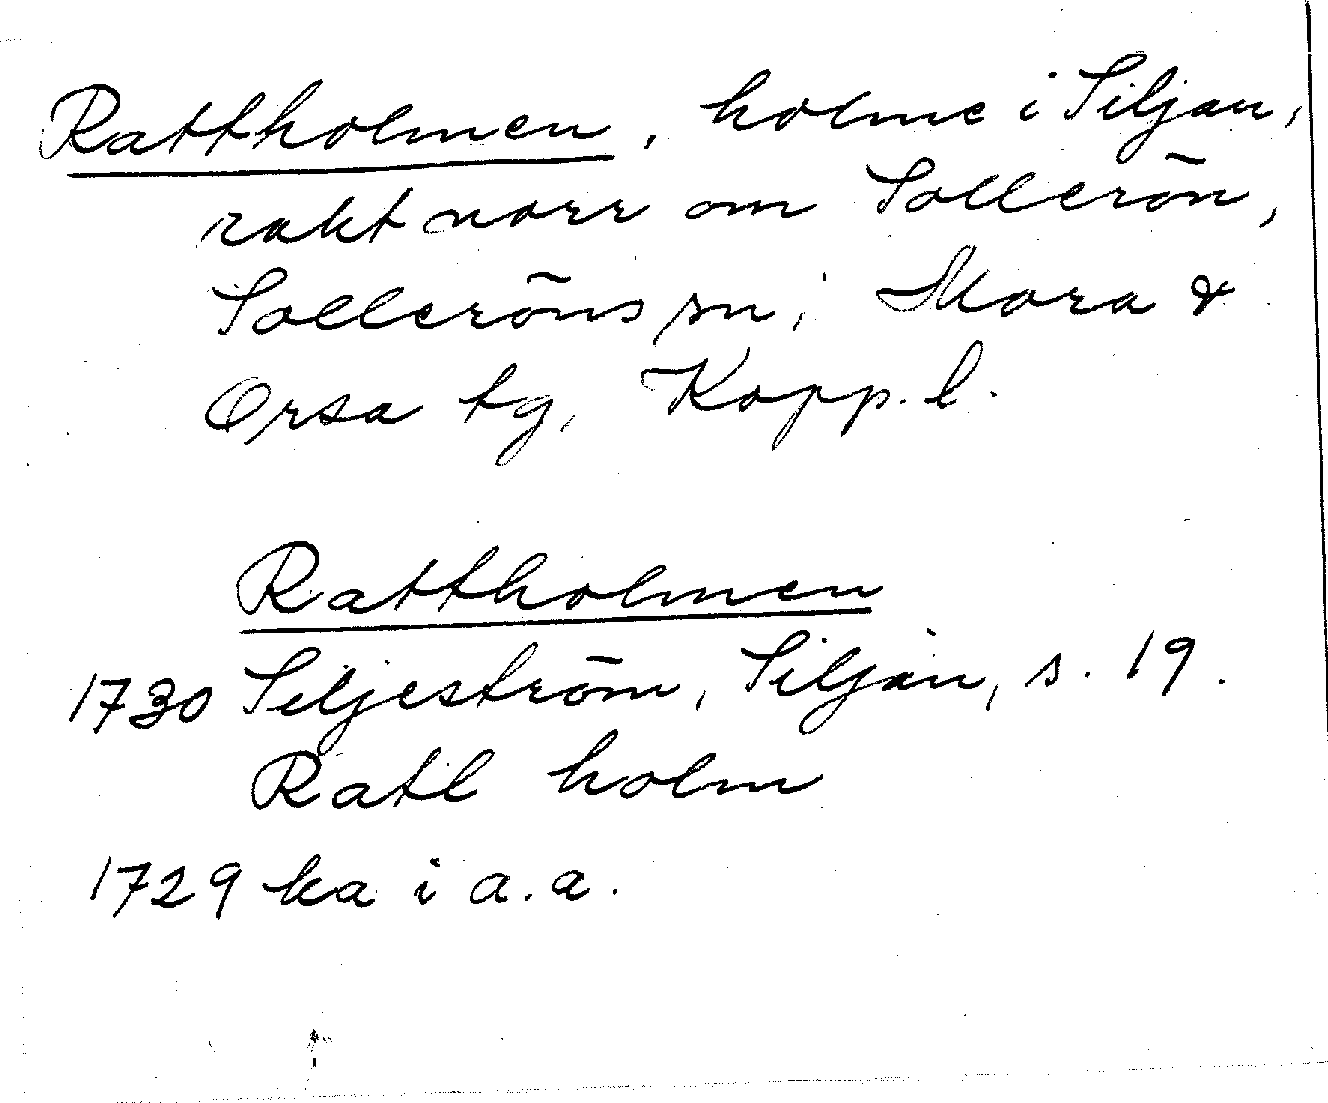 Rattholmen, holme i Siljan,
rakt norr om Sollerön,
Solleröns sn, Mora &
Orsa tg, Kopp. l.
Rattholmen
1730 Siljeström, Siljan, s. 19.
Ratl holm
1729 ka i a.a.